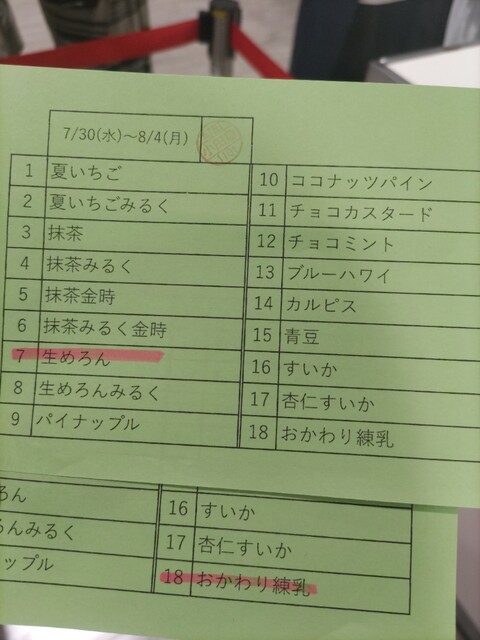 7/30(水)～8/4(月)
1 夏いちご
2 夏いちごみるく
3 抹茶
4 抹茶みるく
5 抹茶金時
6 抹茶みるく金時
7 生めろん
8 生めろんみるく
9 パイナップル
10 ココナッツパイン
11 チョコカスタード
12 チョコミント
13 ブルーハワイ
14 カルピス
15 青豆
16 すいか
17 杏仁すいか
18 おかわり練乳
ろん
らんみるく
ップル
16 すいか
17 杏仁すいか
18 おかわり練乳